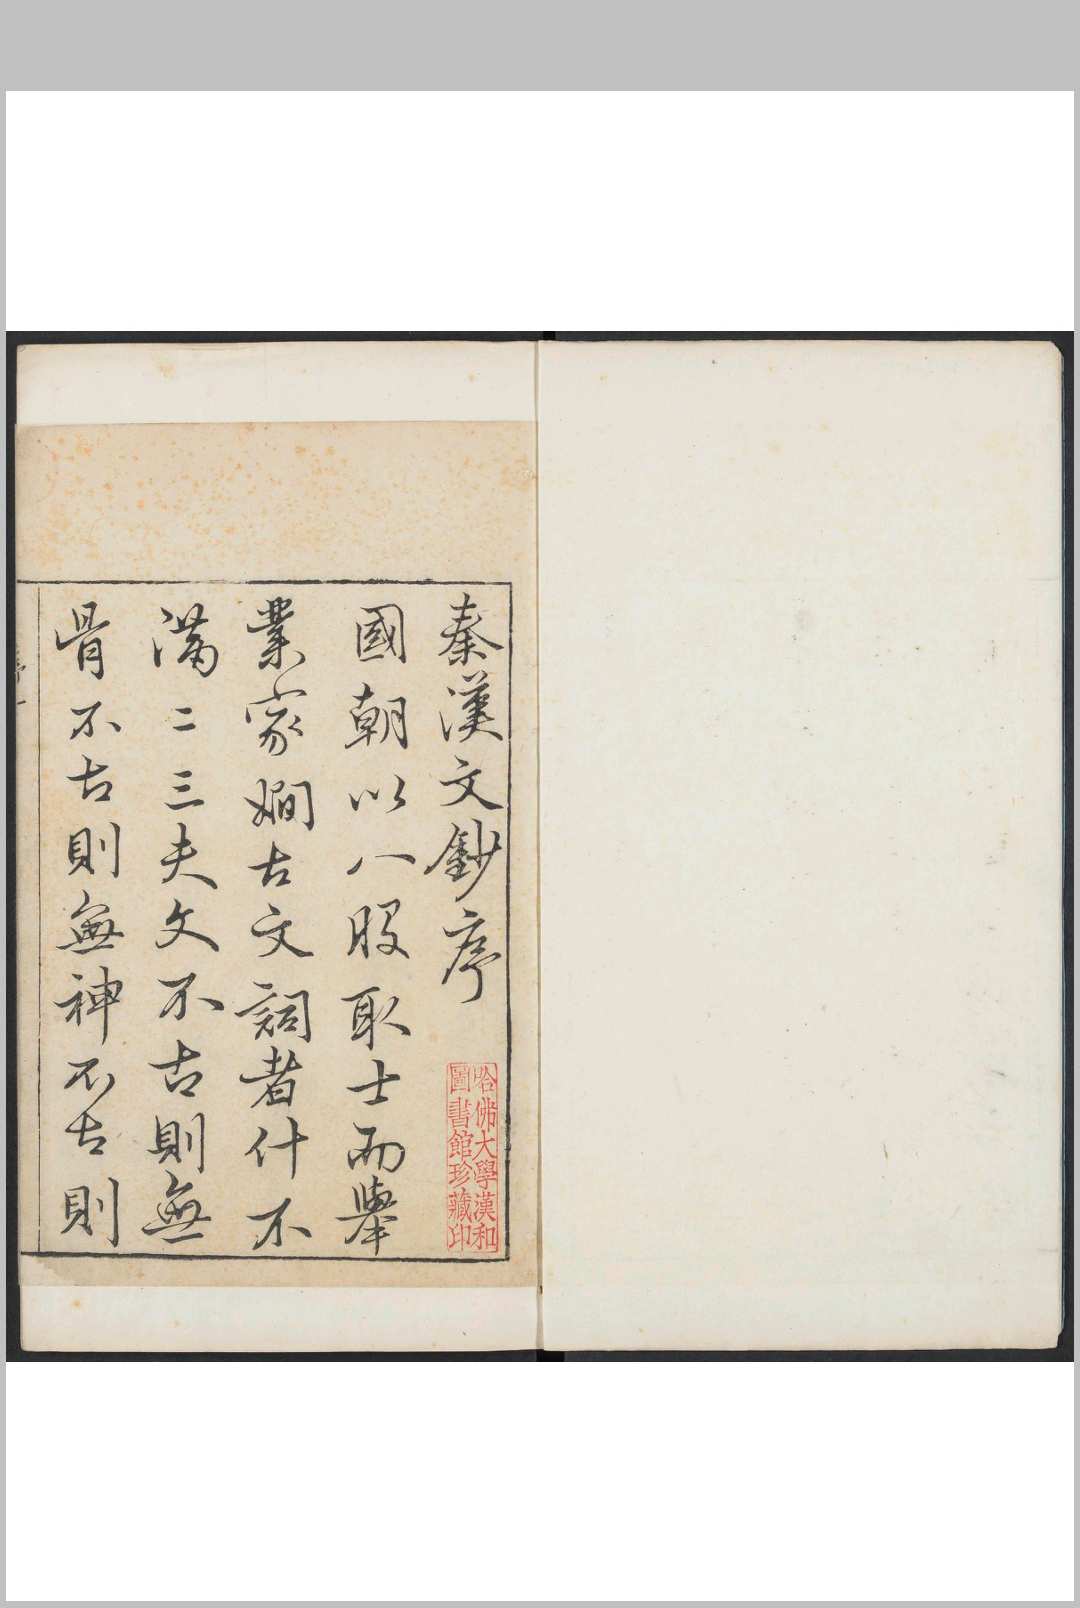 秦漢文鈔序
國朝以八股取士而舉
業家嫺古文詞者什不
滿二三夫文不古則無
骨不古則無神不古則
序 一
哈佛大學漢和
圖書館珍藏印